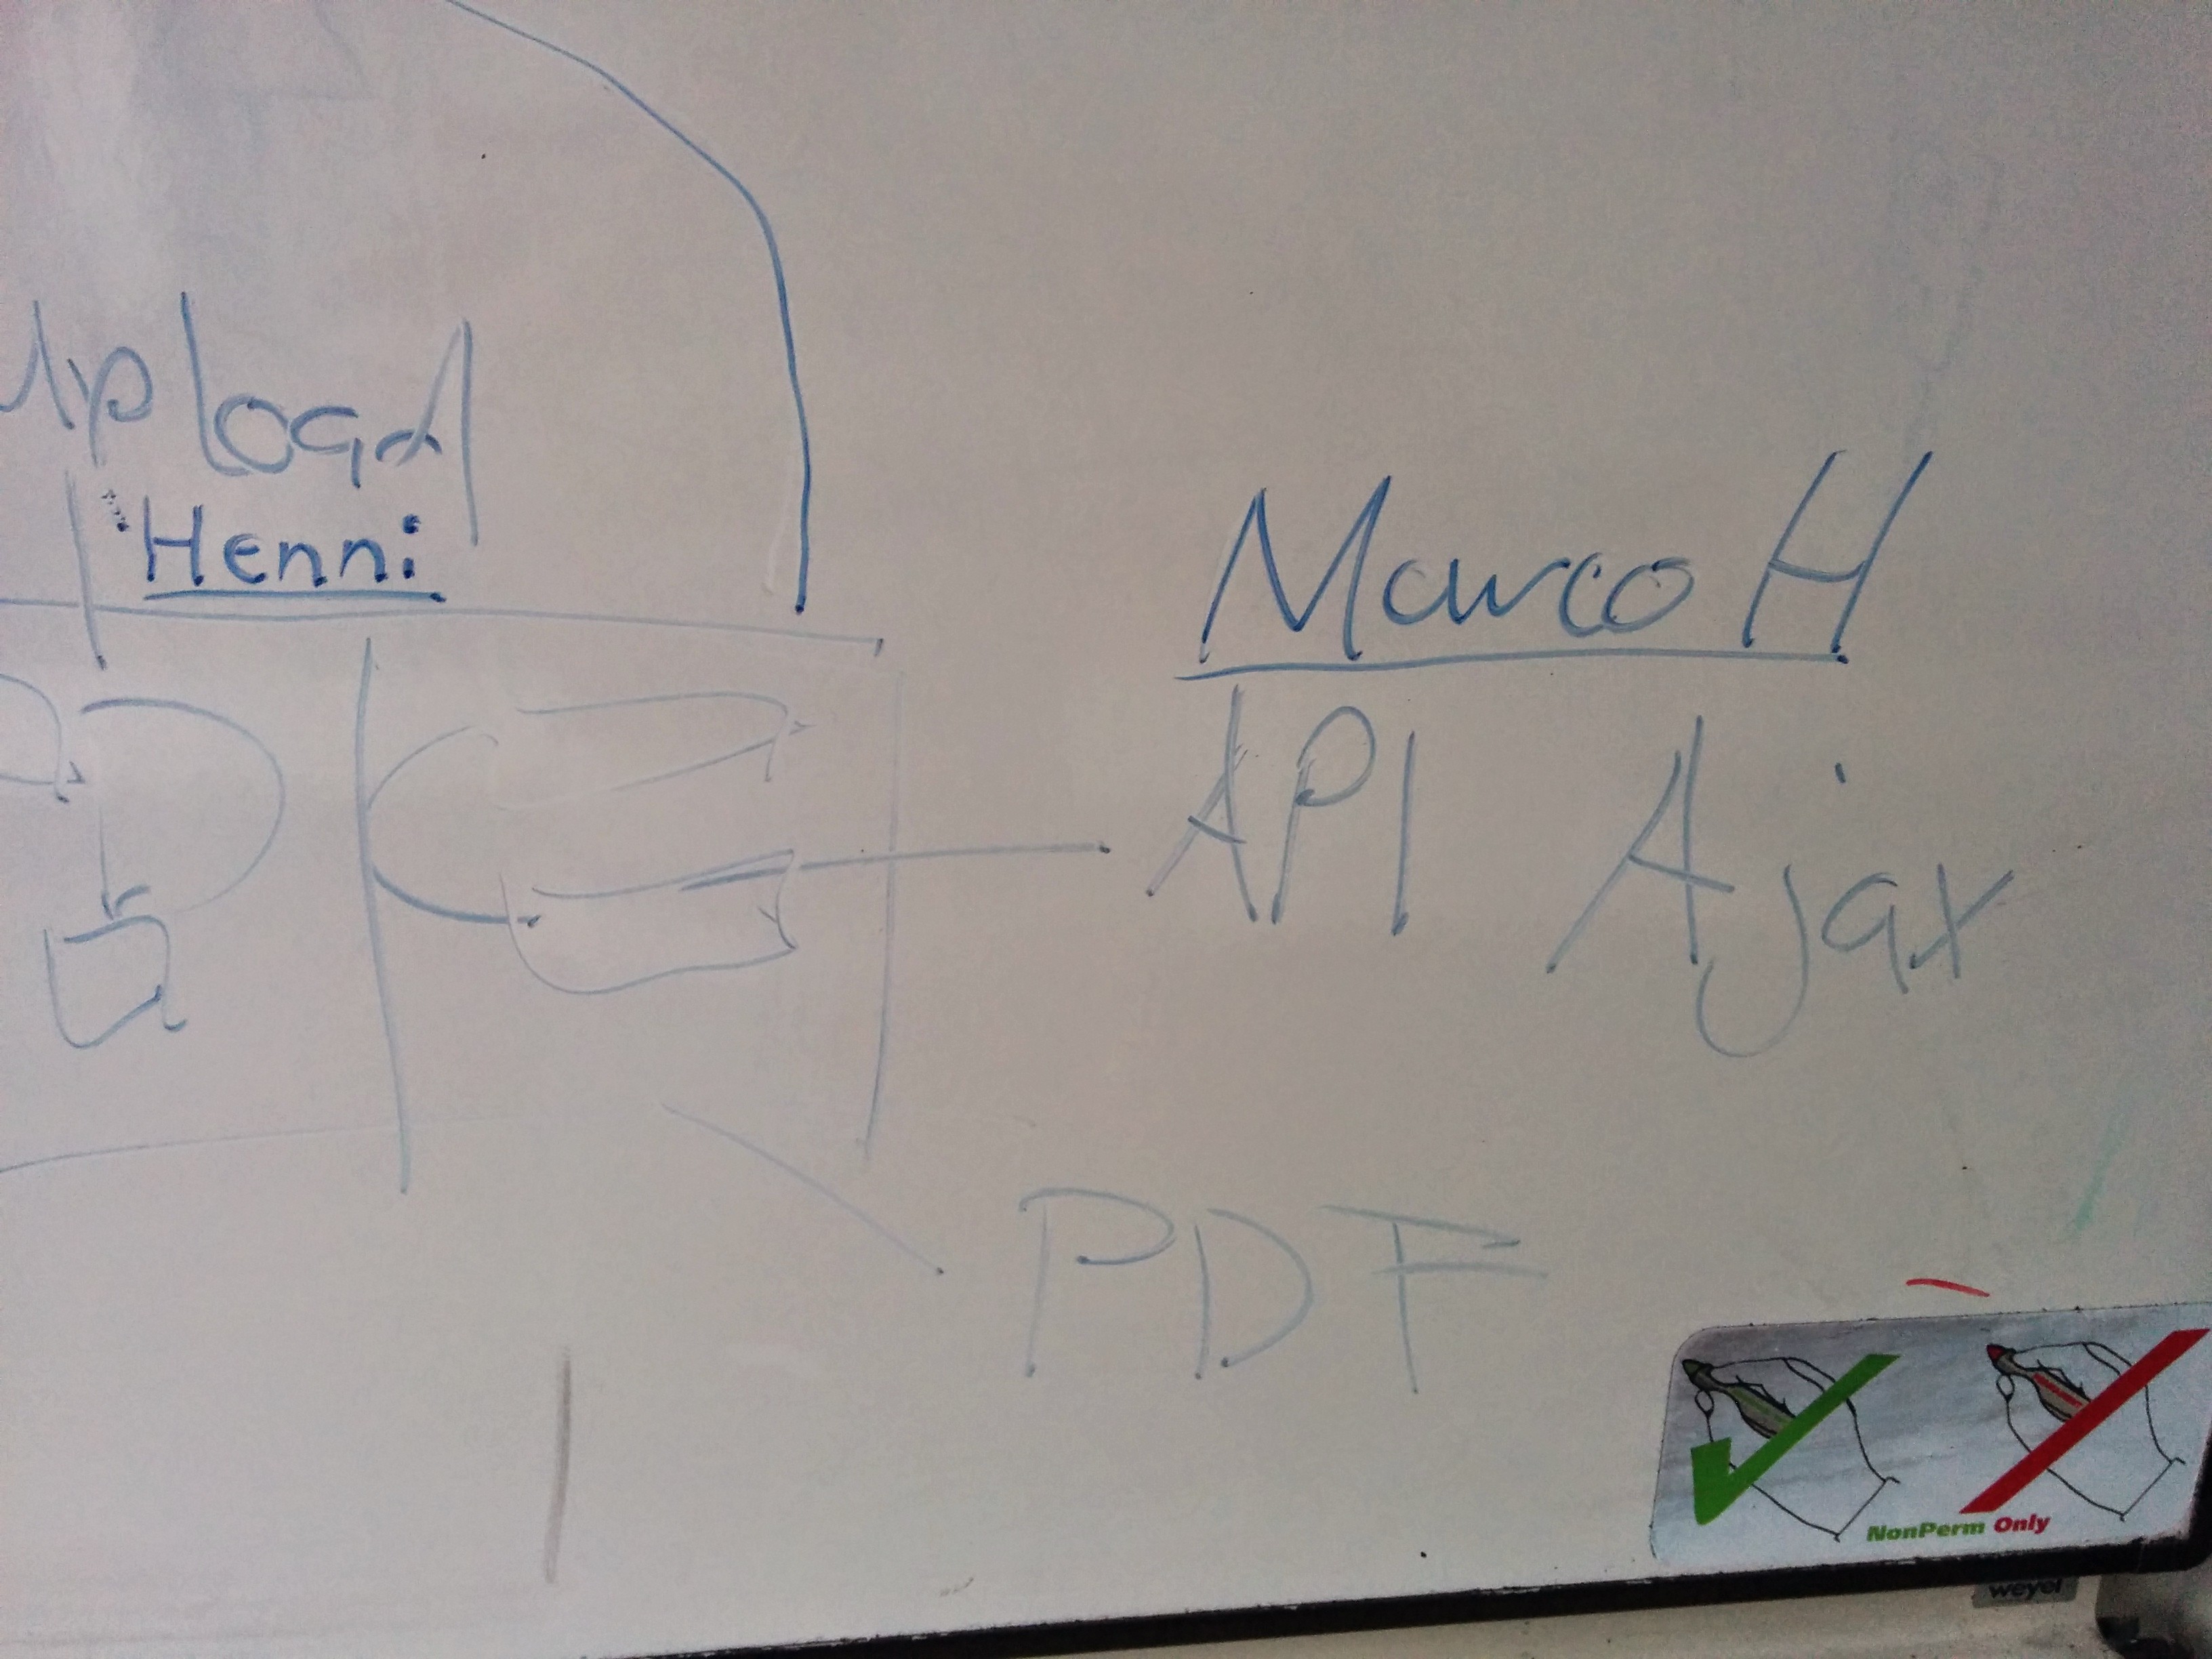 Upload
Henni
Marco H
API Ajax
PDF
NonPerm Only
weyel